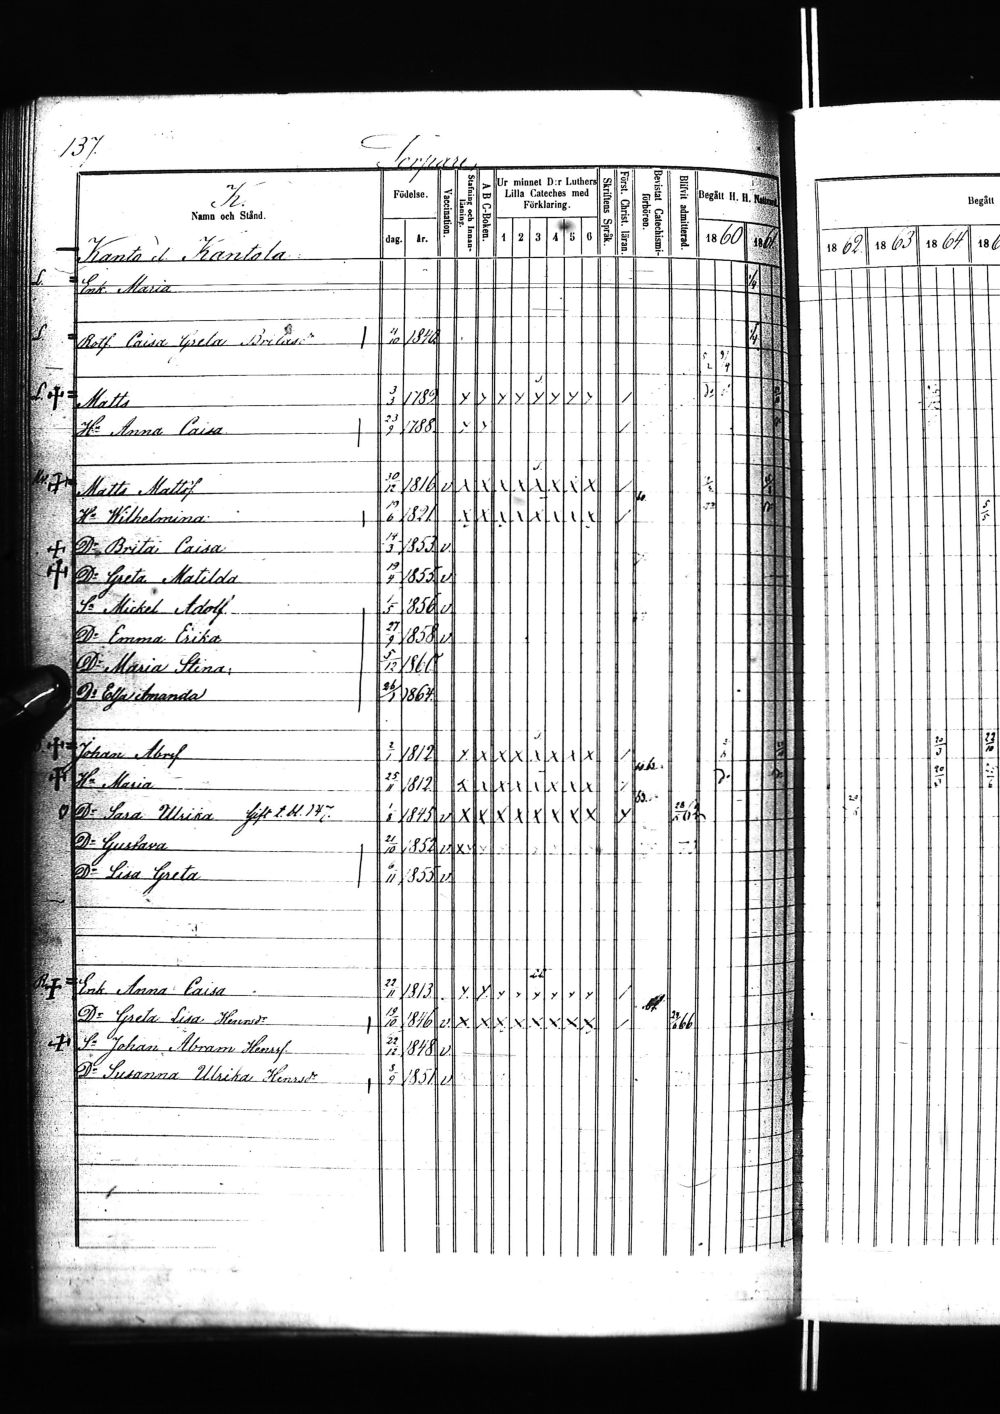 137.
Torpare
K.
Namn och Stånd.
Födelse.
dag. år.
Vaccination.
Stafning och Innan-läsning.
A B C-Boken.
Ur minnet D:r Luthers Lilla Cateches med Förklaring.
1 2 3 4 5 6
Skriftens Språk.
Först. Christ. läran.
Bevistat Catechismi-förhören.
Blifvit admitterad.
Begått H. H. Nattvard
1860 1861
Begått
1862 1863 1864
Kanto l. Kantola
L. Enk. Maria
L. Rolf Caisa Greta 11/10 1840
L. Matts 3/3 1789 x x x x x x x x /
Hu Anna Caisa 23/9 1788 x x /
Matts Mattsf 30/12 1816 v x x x x x x x x /
Hu Wilhelmina 19/6 1821 x x x x x x x x /
Dr Brita Caisa 14/3 1853 v
Dr Greta Matilda 19/9 1855 v
Sn Mickel Adolf 1/5 1856 v
Dr Emma Erika 27/9 1858 v
Dr Maria Stina 5/12 1860
Dr Elsa Amanda 26/1 1864
Johan Abrsf 2/1 1812 x x x x x x x x /
Hu Maria 25/11 1812 x x x x x x x x
Dr Sara Ulrika gift t. bl. 147. 1/8 1845 v x x x x x x x x x
Dr Gustava 21/10 1852 v x
Dr Lisa Greta 6/11 1855 v
Enk. Anna Caisa 22/11 1813 x x x x x x x x /
Dr Greta Lisa Henrsdr 18/10 1846 v x x x x x x x x / 66
Sn Johan Abram Henrsf 22/12 1848 v
Dr Susanna Ulrika Henrsdr 8/9 1851 v